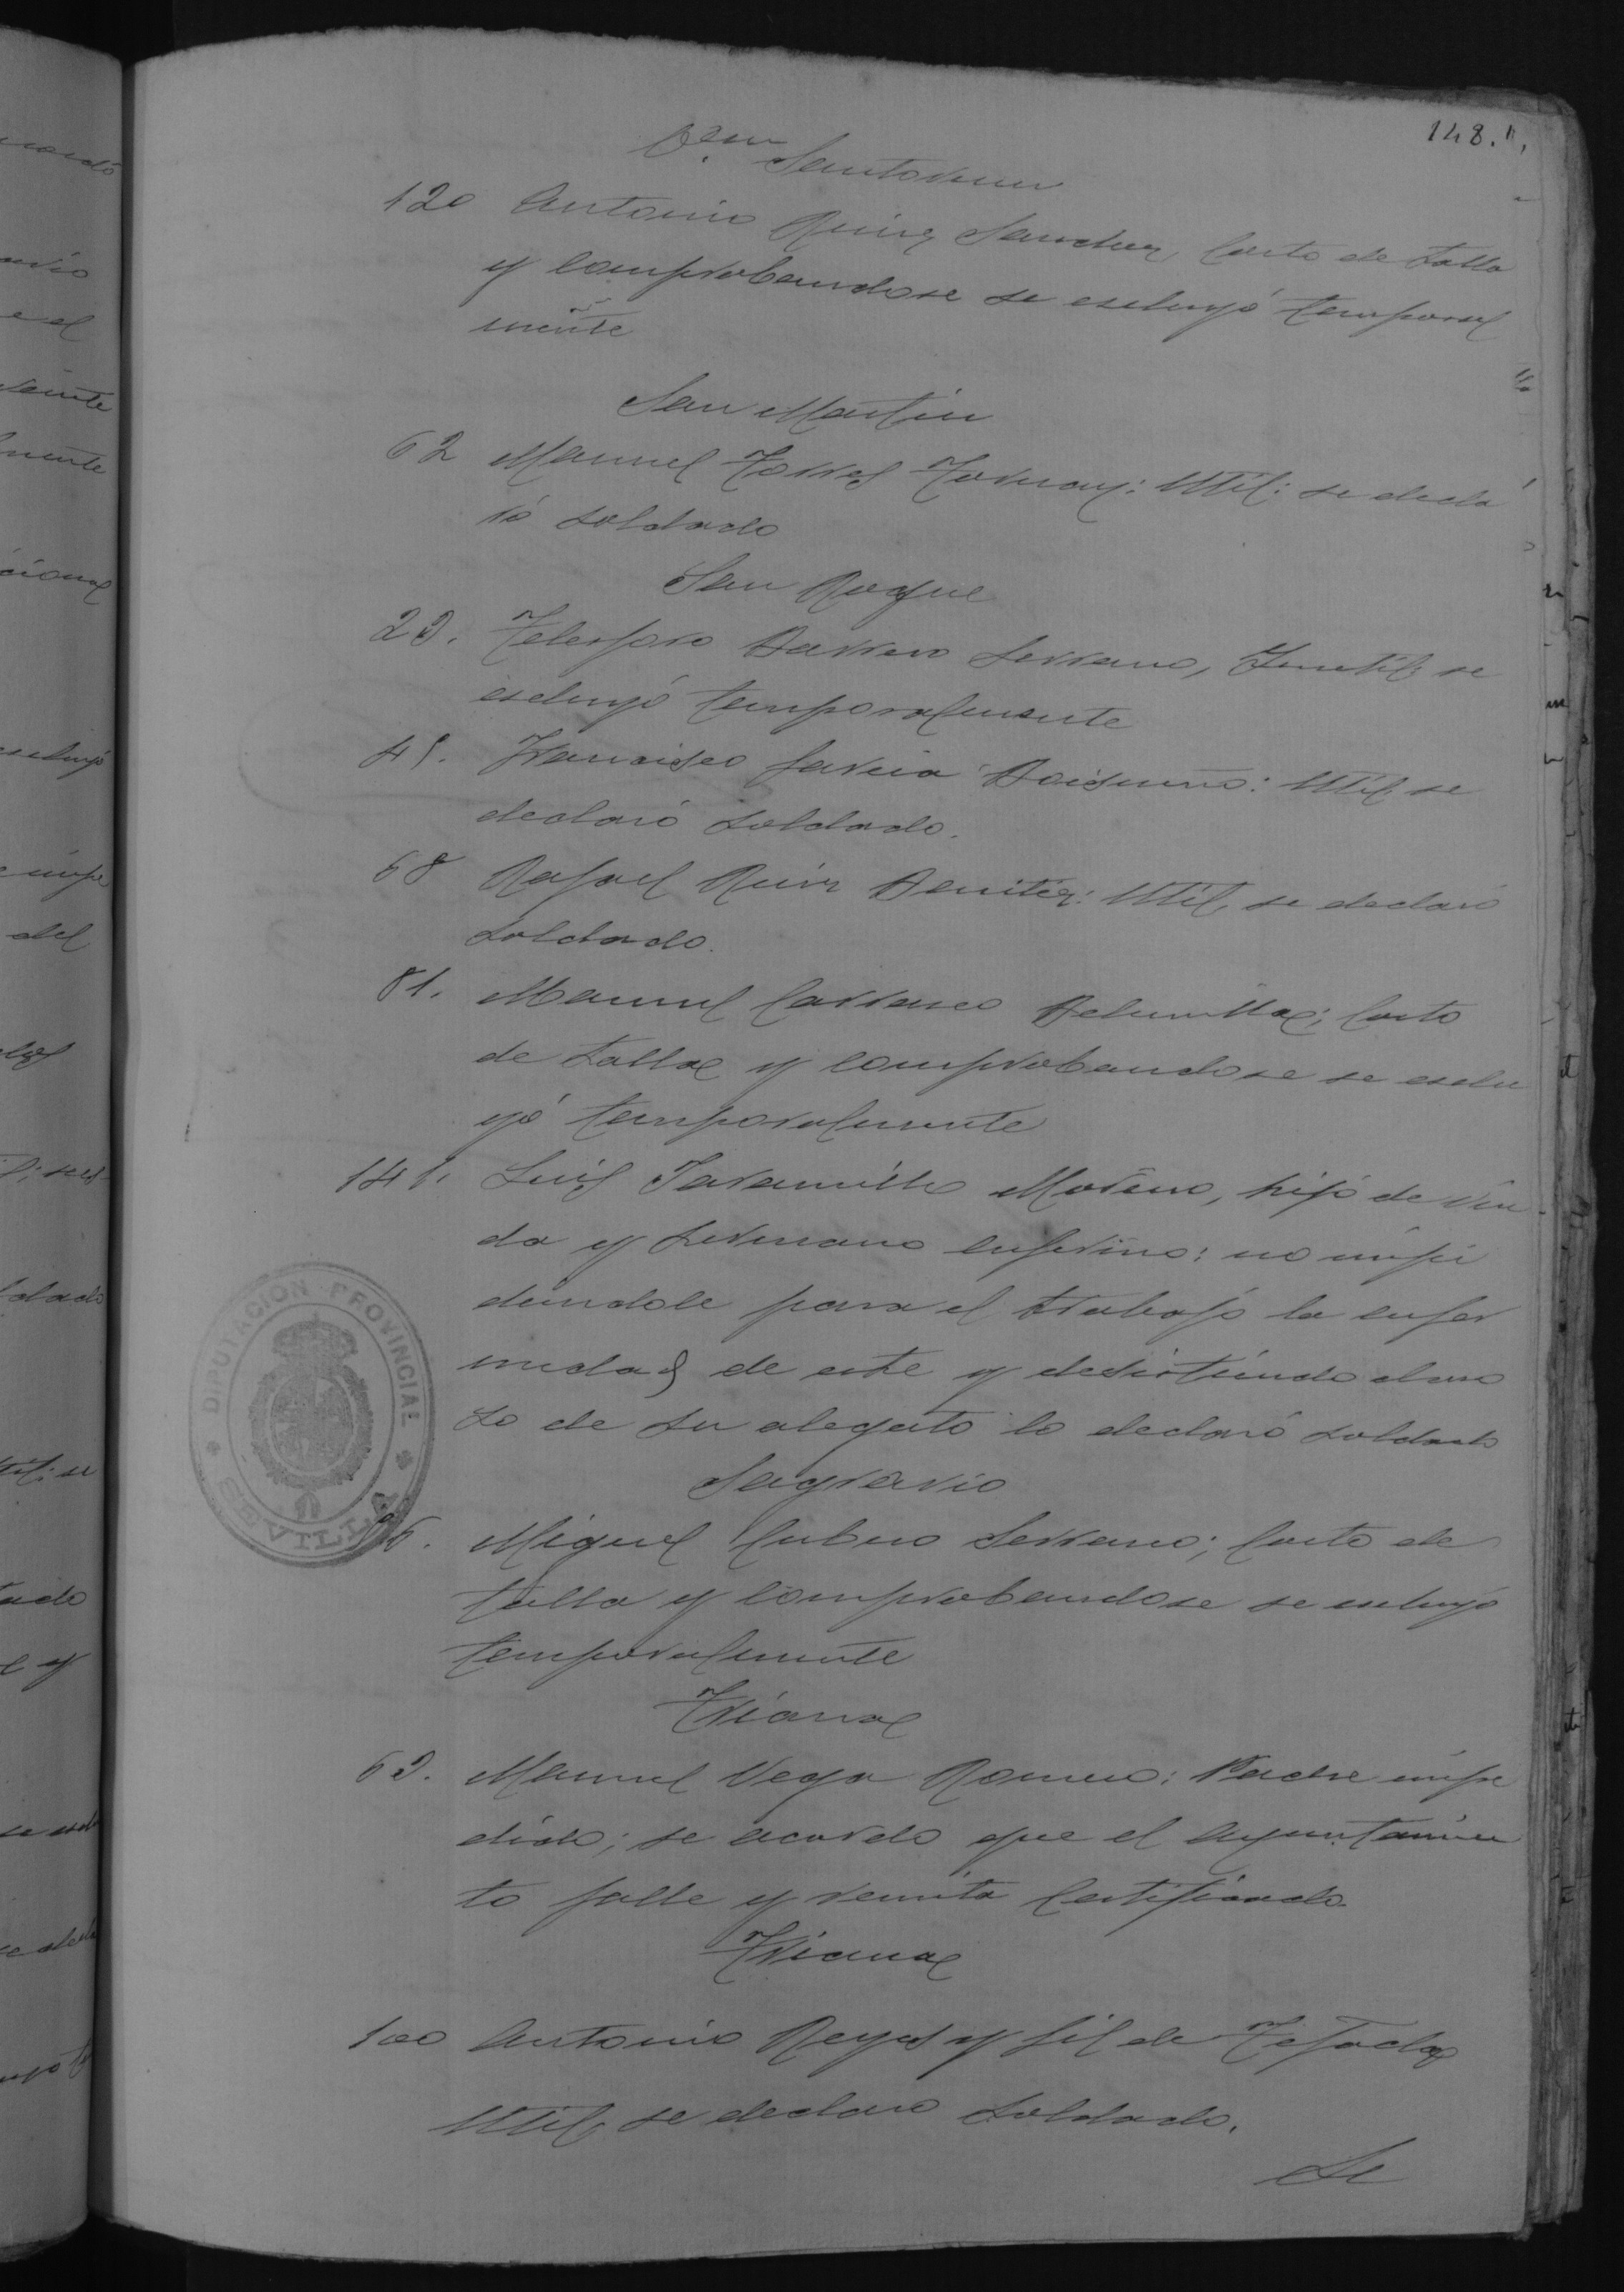 148.
120 Antonio Ruiz Sanchez, Corto de talla
y comprobandose se escluyó temporal
mente
San Martin
62 Manuel Torres Util: se decla
ró soldado
San Roque
29. Telesforo Barrero Serrano, Inutil, se
escluyó temporalmente
Francisco Garcia Util, se
declaró soldado.
68 Rafael Ruiz Benitez: Util, se declaró
soldado.
81. Manuel Carrasco Corto
de talla y comprobandose se esclu
yó temporalmente
141. Luis Jaramillo Moreno, hijo de viu
da y hermano enfermo: no impi
diendole para el trabajo la enfer
medad de este y desistiendo el mo
zo de su alegato lo declaró soldado
Sagrario
Miguel Cubero Serrano; Corto de
talla y comprobandose se escluyó
temporalmente
Triana
69. Manuel Vega Romero: Padre impe
dido; se acordo que el ayuntamien
to falle y remita Certificado.
Triana
100 Antonio Reyes y Gil de Tejada
Util, se declaro soldado.
Se
DIPUTACION PROVINCIAL
SEVILLA